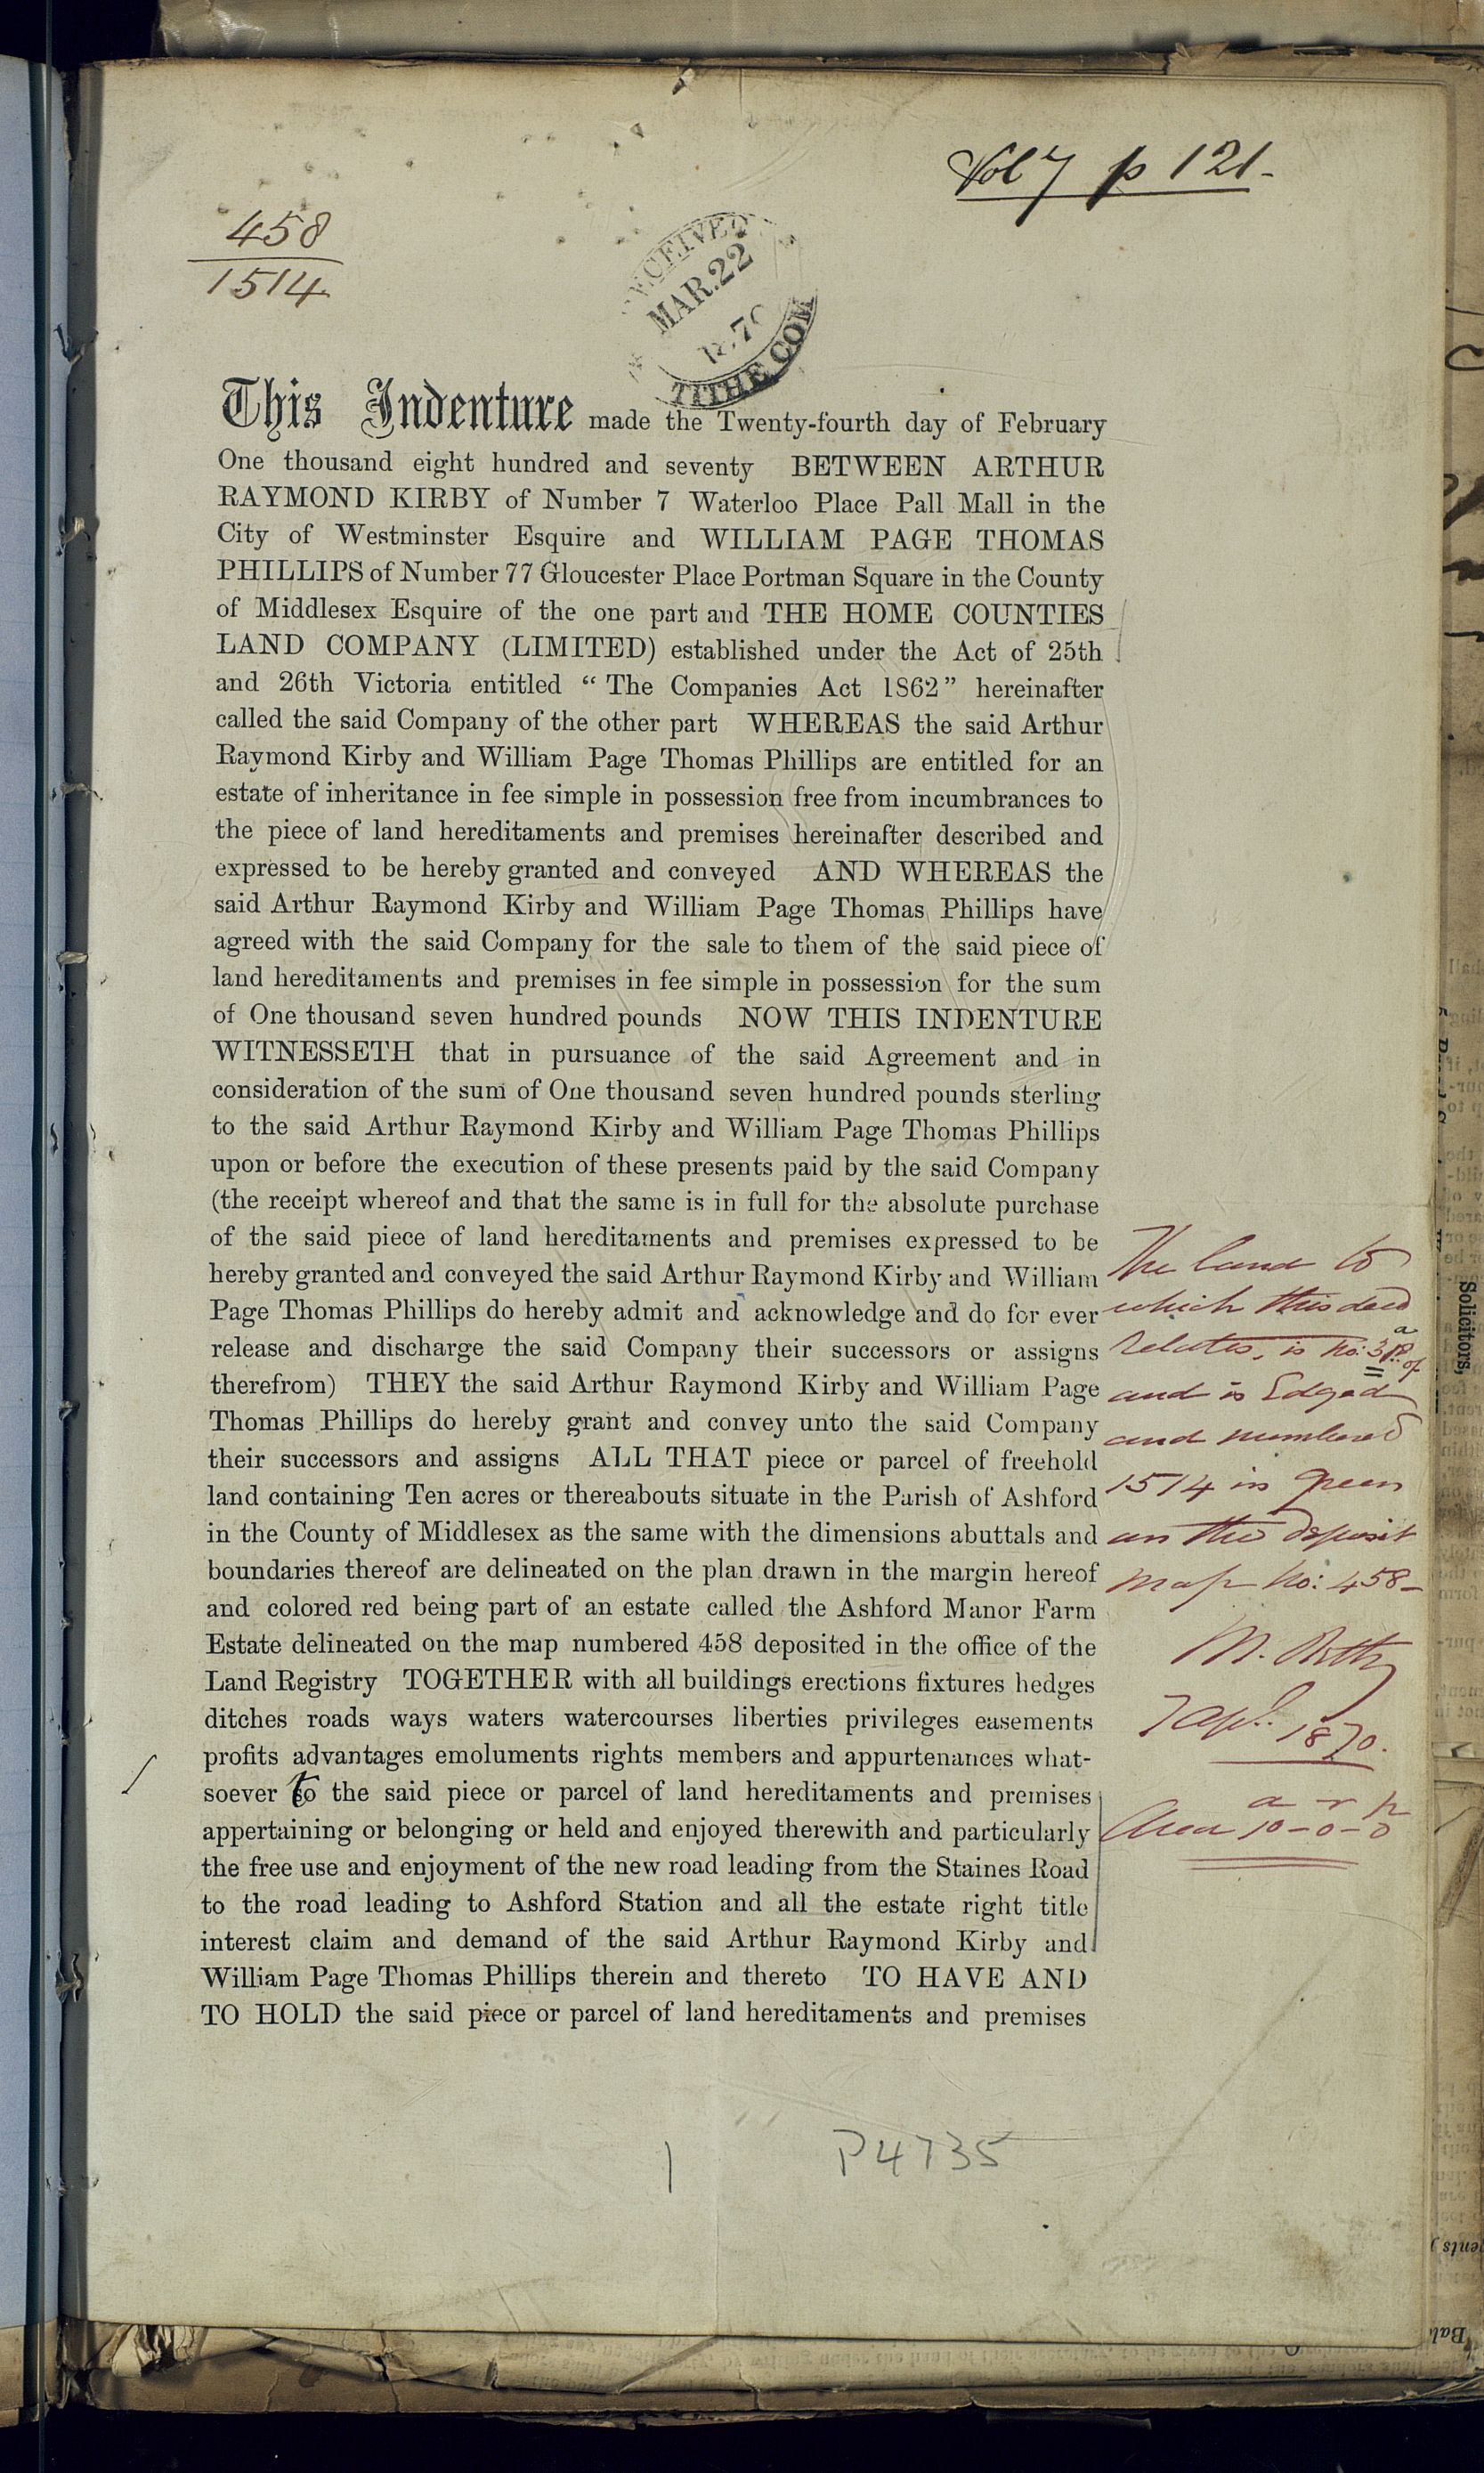 Vol 7 p 121-
458
1514
RECEIVED
MAR. 22
TITHE COM
This Indenture made the Twenty-fourth day of February
One thousand eight hundred and seventy BETWEEN ARTHUR
RAYMOND KIRBY of Number 7 Waterloo Place Pall Mall in the
City of Westminster Esquire and WILLIAM PAGE THOMAS
PHILLIPS of Number 77 Gloucester Place Portman Square in the County
of Middlesex Esquire of the one part and THE HOME COUNTIES
LAND COMPANY (LIMITED) established under the Act of 25th
and 26th Victoria entitled “The Companies Act 1862” hereinafter
called the said Company of the other part WHEREAS the said Arthur
Raymond Kirby and William Page Thomas Phillips are entitled for an
estate of inheritance in fee simple in possession free from incumbrances to
the piece of land hereditaments and premises hereinafter described and
expressed to be hereby granted and conveyed AND WHEREAS the
said Arthur Raymond Kirby and William Page Thomas Phillips have
agreed with the said Company for the sale to them of the said piece of
land hereditaments and premises in fee simple in possession for the sum
of One thousand seven hundred pounds NOW THIS INDENTURE
WITNESSETH that in pursuance of the said Agreement and in
consideration of the sum of One thousand seven hundred pounds sterling
to the said Arthur Raymond Kirby and William Page Thomas Phillips
upon or before the execution of these presents paid by the said Company
(the receipt whereof and that the same is in full for the absolute purchase
of the said piece of land hereditaments and premises expressed to be
hereby granted and conveyed the said Arthur Raymond Kirby and William
Page Thomas Phillips do hereby admit and acknowledge and do for ever
release and discharge the said Company their successors or assigns
therefrom) THEY the said Arthur Raymond Kirby and William Page
Thomas Phillips do hereby grant and convey unto the said Company
their successors and assigns ALL THAT piece or parcel of freehold
land containing Ten acres or thereabouts situate in the Parish of Ashford
in the County of Middlesex as the same with the dimensions abuttals and
boundaries thereof are delineated on the plan drawn in the margin hereof
and colored red being part of an estate called the Ashford Manor Farm
Estate delineated on the map numbered 458 deposited in the office of the
Land Registry TOGETHER with all buildings erections fixtures hedges
ditches roads ways waters watercourses liberties privileges easements
profits advantages emoluments rights members and appurtenances what-
soever to the said piece or parcel of land hereditaments and premises
appertaining or belonging or held and enjoyed therewith and particularly
the free use and enjoyment of the new road leading from the Staines Road
to the road leading to Ashford Station and all the estate right title
interest claim and demand of the said Arthur Raymond Kirby and
William Page Thomas Phillips therein and thereto TO HAVE AND
TO HOLD the said piece or parcel of land hereditaments and premises
The land to
which this deed
relates, is No:
and is Edged
and numbered
1514 in green
on the deposit
map No: 458-
7 Apl. 1870.
a r p
Area 10-0-0
1 P4735
Solicitors,